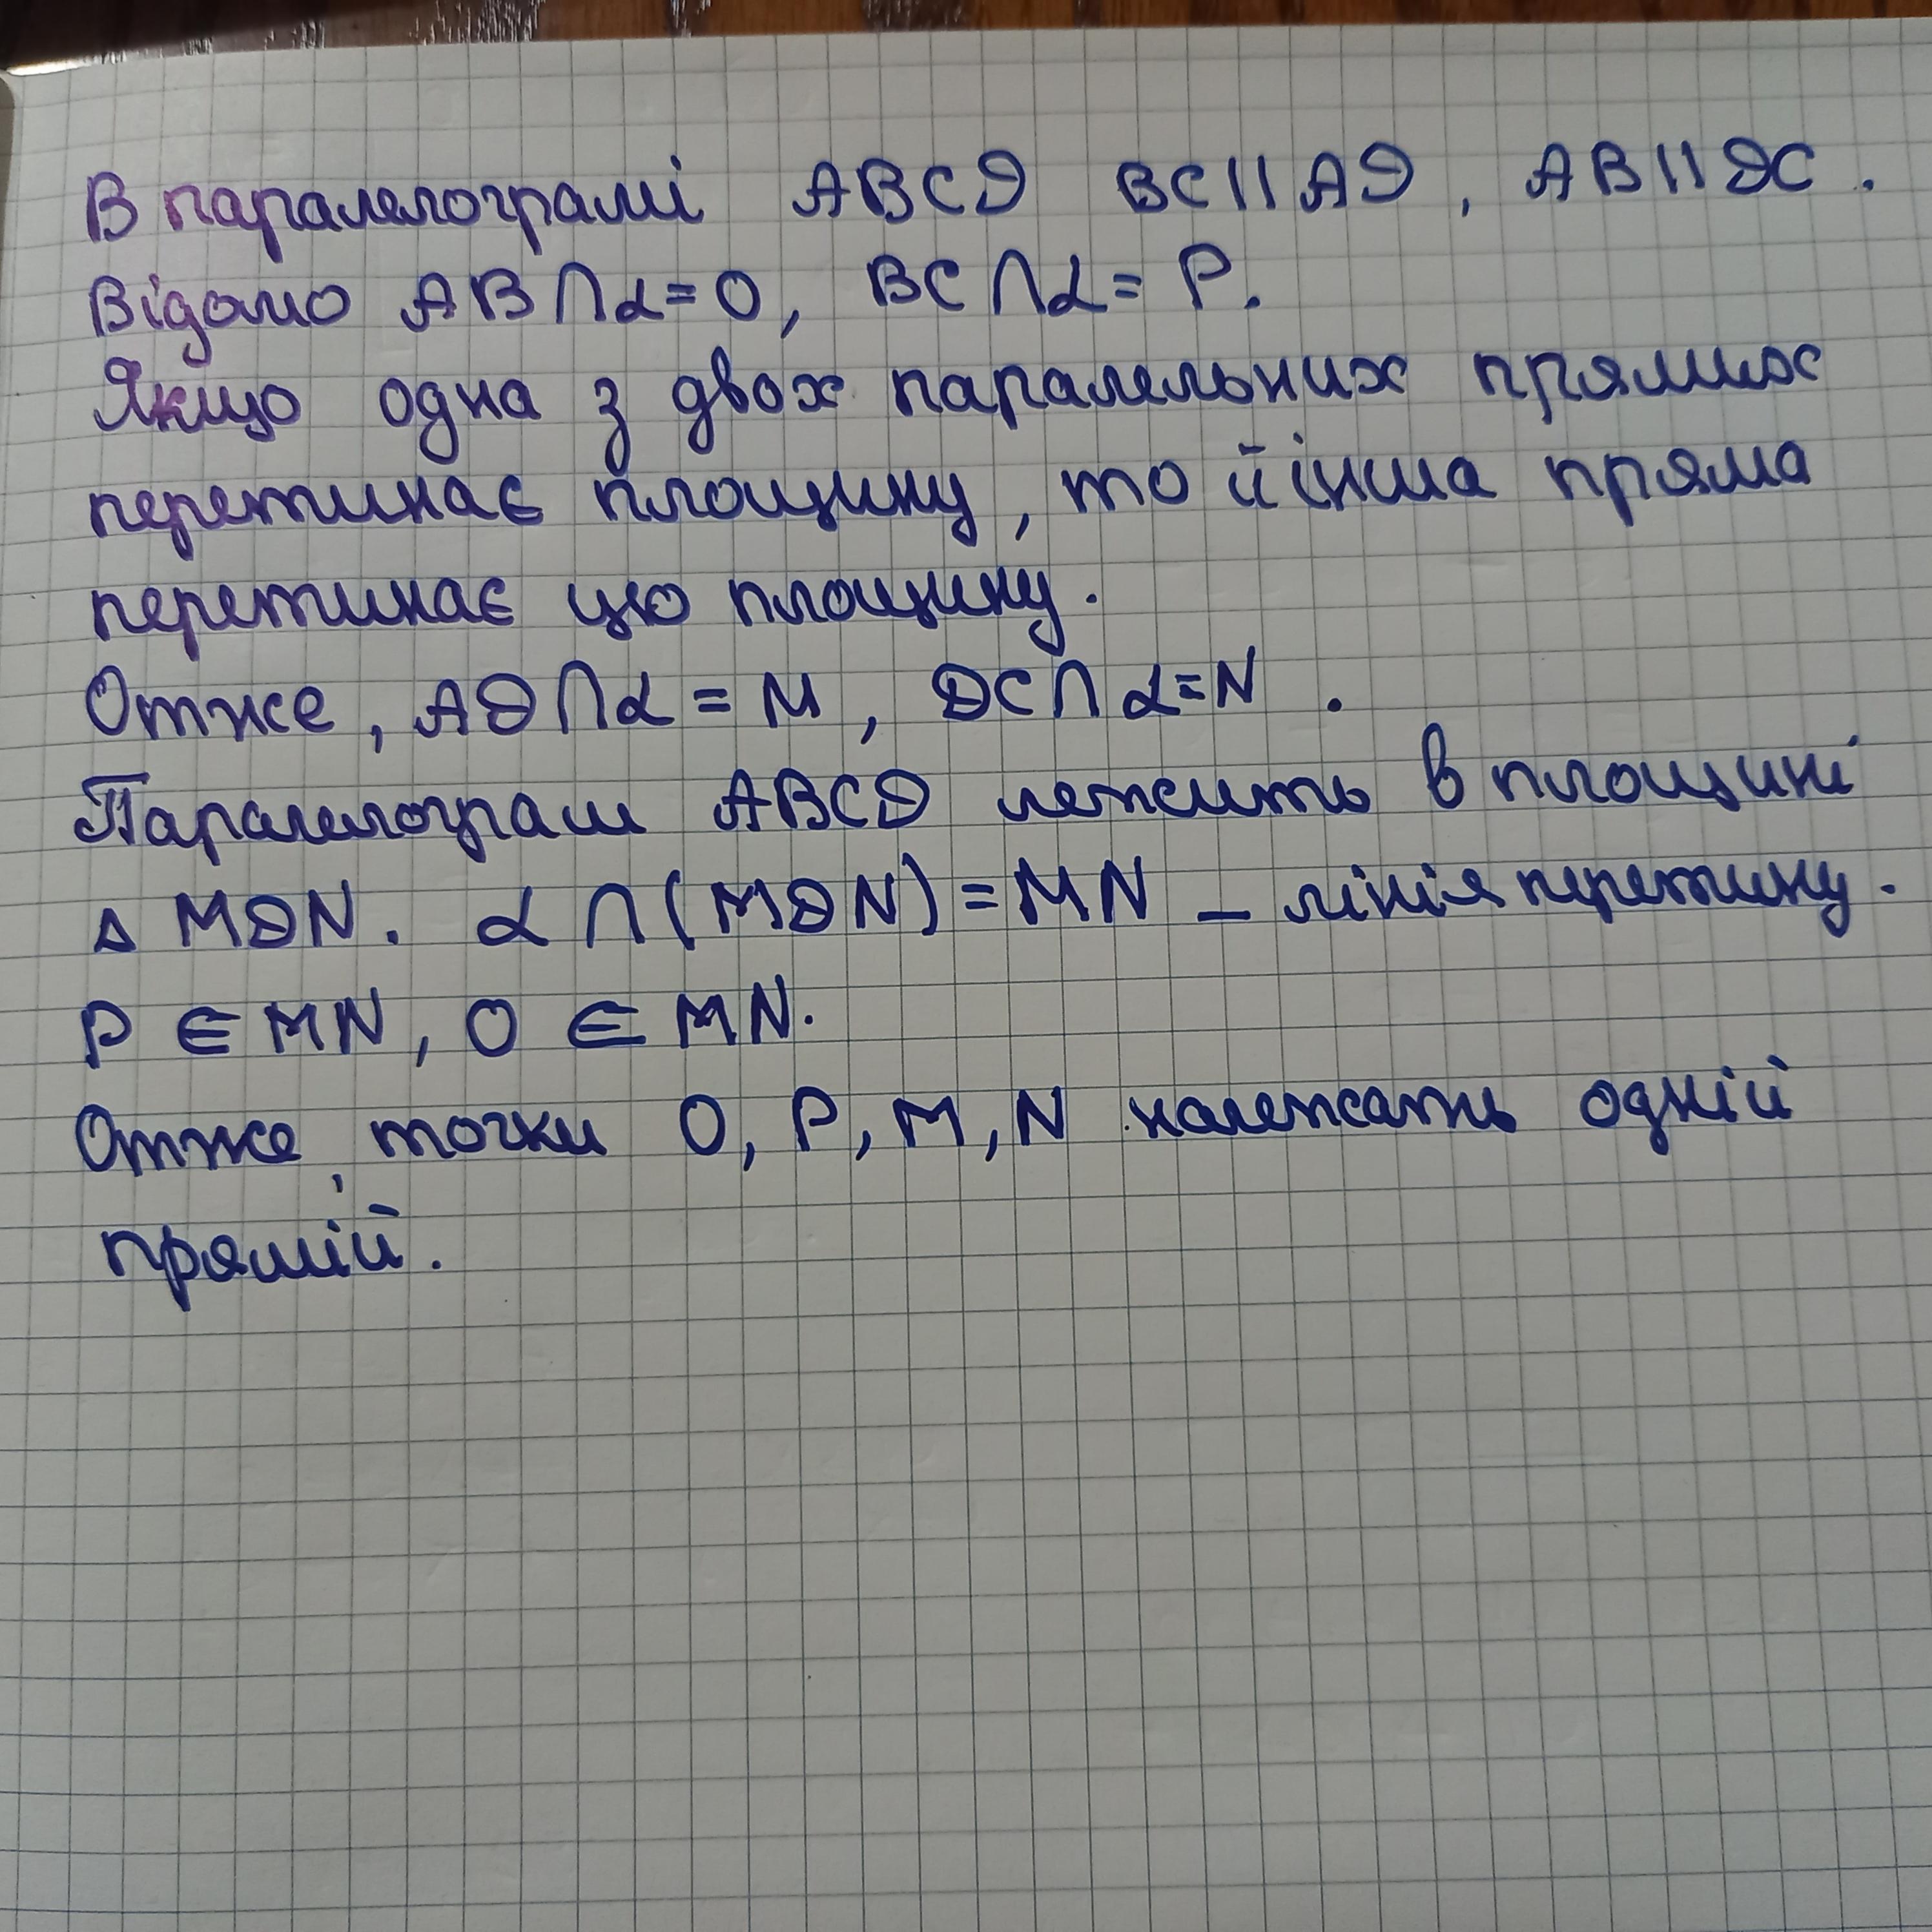 В паралелограмі ABCD BC || AD, AB || DC.
Відомо AB ∩ α = O, BC ∩ α = P.
Якщо одна з двох паралельних прямих
перетинає площину, то й інша пряма
перетинає цю площину.
Отже, AD ∩ α = M, DC ∩ α = N.
Паралелограм ABCD лежить в площині
Δ MDN. α ∩ (MDN) = MN – лінія перетину.
P ∈ MN, O ∈ MN.
Отже, точки O, P, M, N належать одній
прямій.